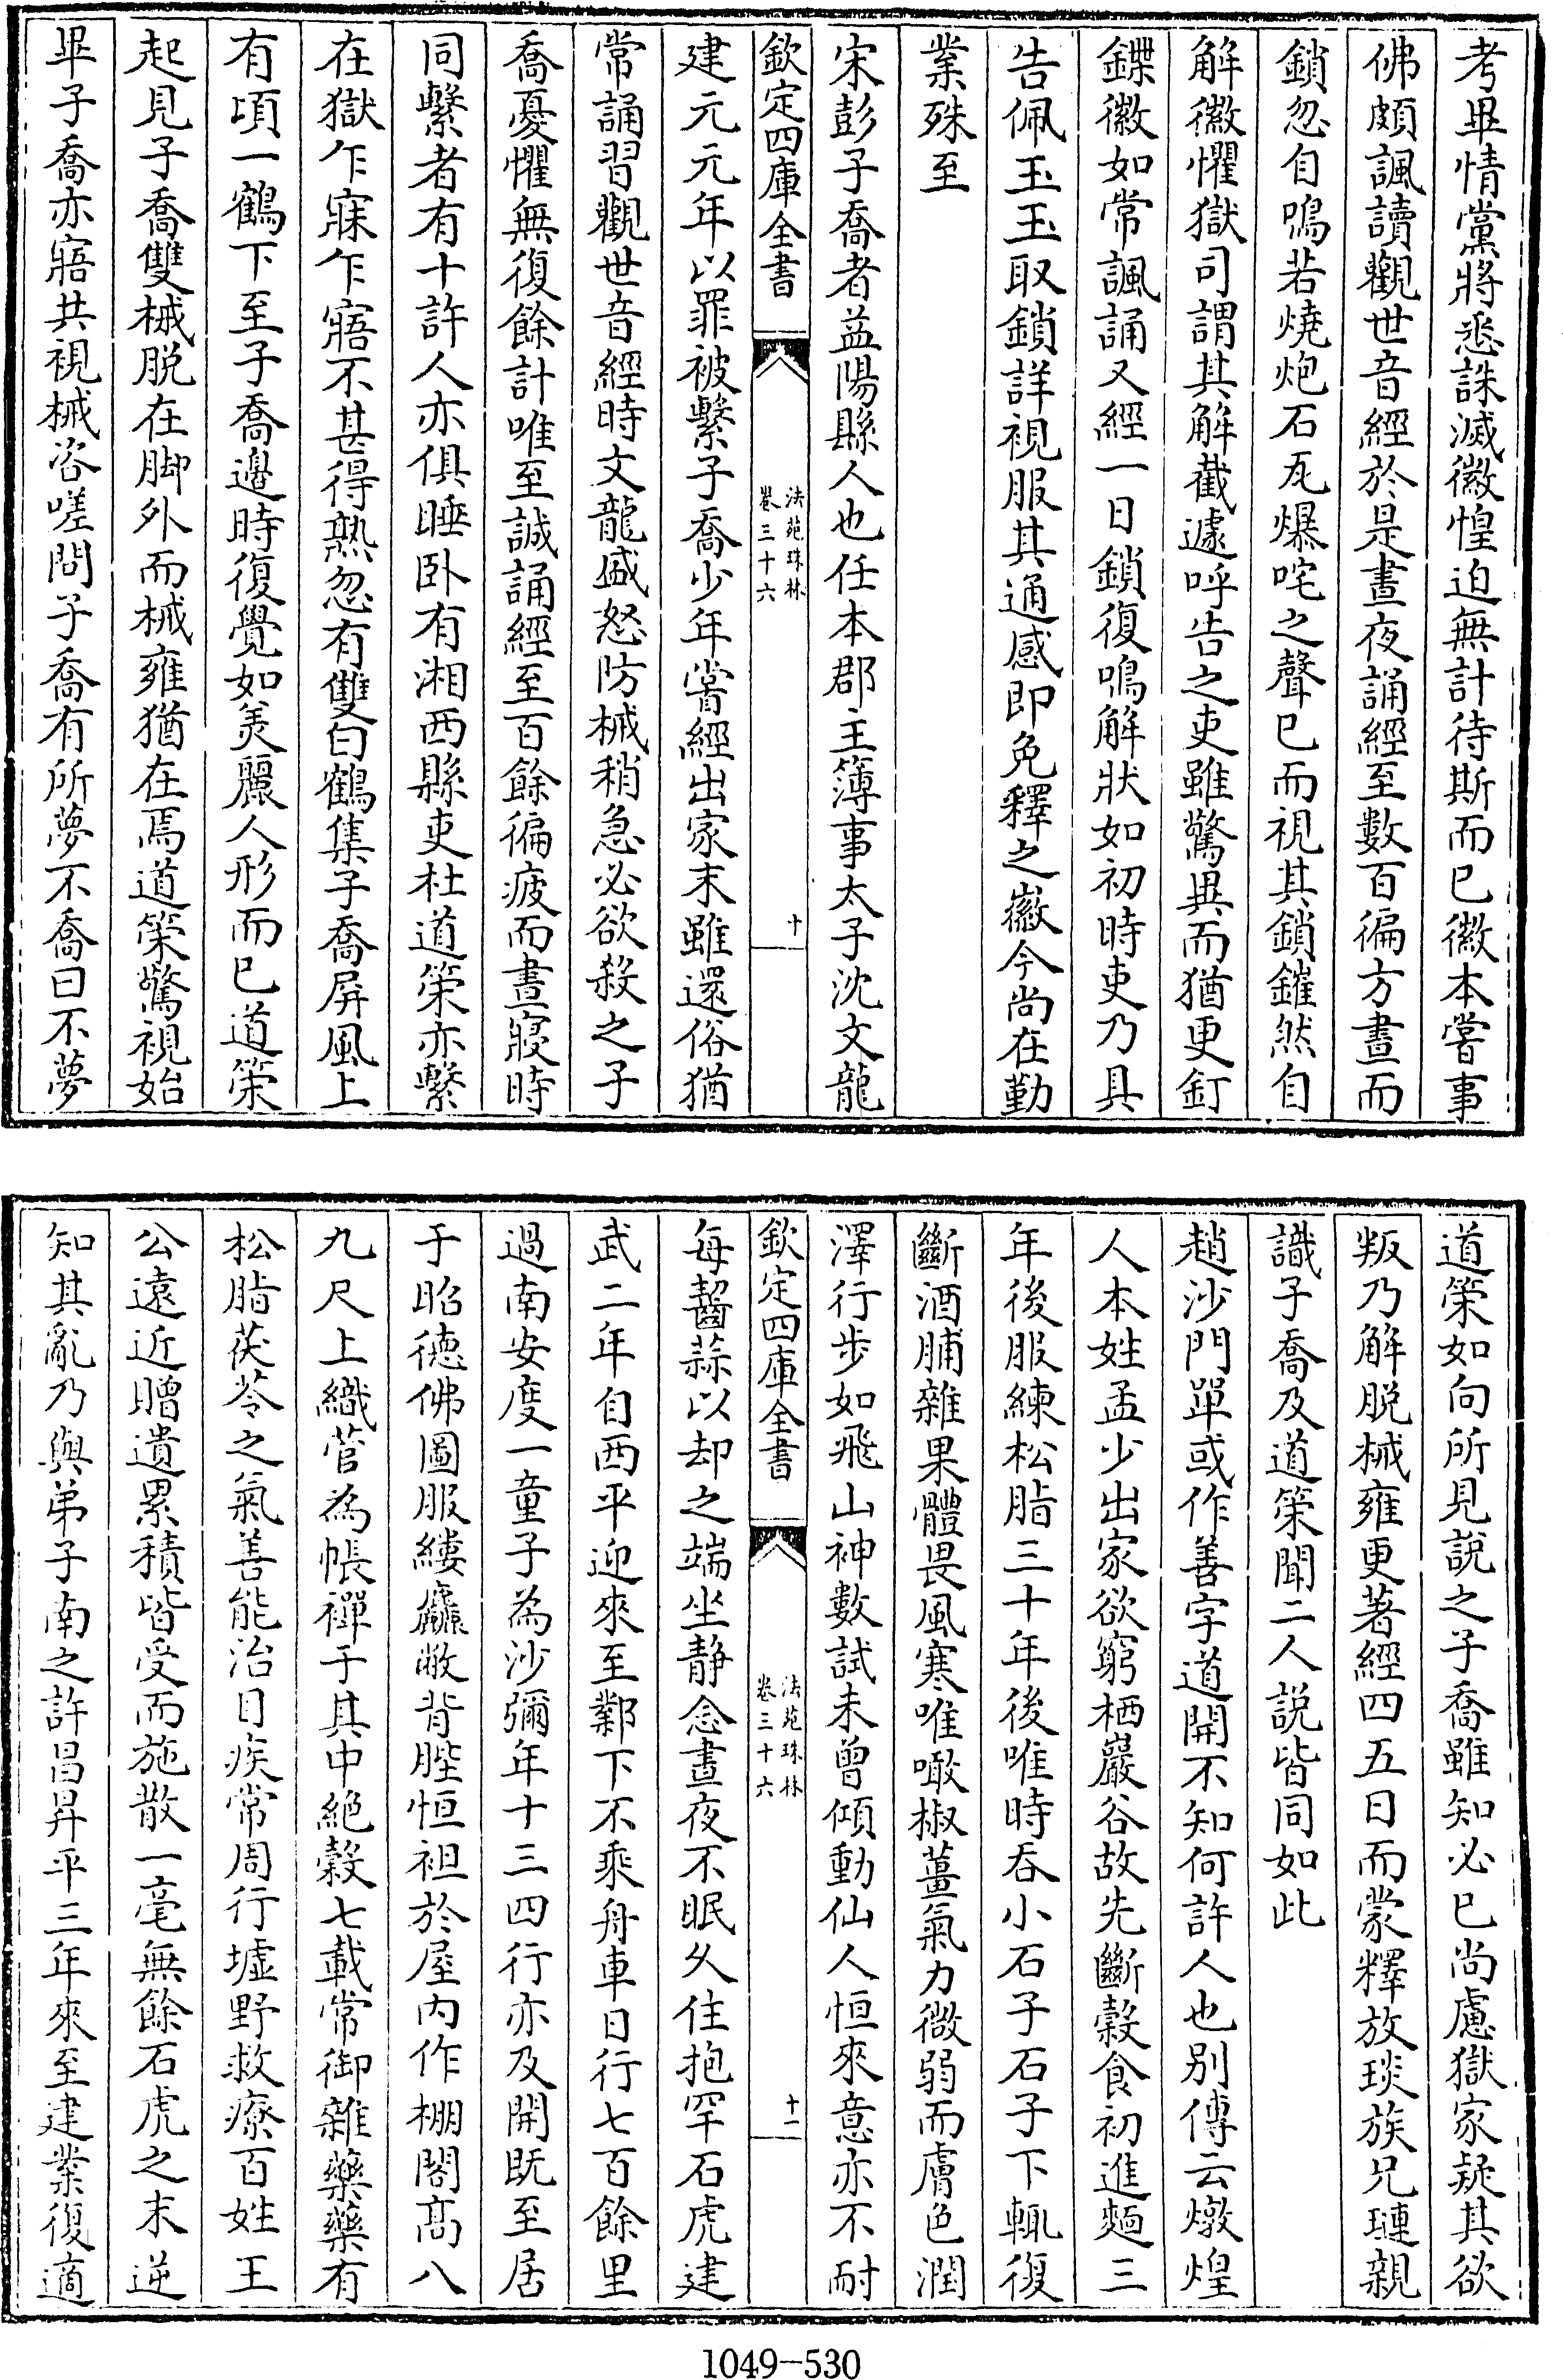 考畢情黨將悉誅滅徽惶迫無計待斯而已徽本嘗事
佛頗諷讀觀世音經於是晝夜誦經至數百徧方晝而
鎖忽自鳴若燒炮石瓦爆咤之聲已而視其鎖鏙然自
解徽懼獄司謂其解截遽呼告之吏雖驚異而猶更釘
鍱徽如常諷誦又經一日鎖復鳴解狀如初時吏乃具
告佩玉玉取鎖詳視服其通感即免釋之徽今尚在勤
業殊至
宋彭子喬者益陽縣人也任本郡主簿事太子沈文龍
欽定四庫全書
法苑珠林
卷三十六
十
建元元年以罪被繫子喬少年嘗經出家末雖還俗猶
常誦習觀世音經時文龍盛怒防械稍急必欲殺之子
喬憂懼無復餘計唯至誠誦經至百餘徧疲而晝寢時
同繫者有十許人亦俱睡卧有湘西縣吏杜道策亦繫
在獄乍寐乍寤不甚得熟忽有雙白鶴集子喬屏風上
有頃一鶴下至子喬邊時復覺如美麗人形而已道策
起見子喬雙械脱在脚外而械雍猶在焉道策驚視始
畢子喬亦寤共視械咨嗟問子喬有所夢不喬曰不夢
道策如向所見説之子喬雖知必已尚慮獄家疑其欲
叛乃解脱械雍更著經四五日而蒙釋放琰族兄璉親
識子喬及道策聞二人説皆同如此
趙沙門單或作善字道開不知何許人也别傳云燉煌
人本姓孟少出家欲窮栖巖谷故先斷穀食初進麵三
年後服練松脂三十年後唯時吞小石子石子下輒復
斷酒脯雜果體畏風寒唯噉椒薑氣力微弱而膚色潤
澤行步如飛山神數試未曾傾動仙人恒來意亦不耐
欽定四庫全書
法苑珠林
卷三十六
十一
每齧蒜以却之端坐静念晝夜不眠久住抱罕石虎建
武二年自西平迎來至鄴下不乘舟車日行七百餘里
過南安度一童子為沙彌年十三四行亦及開既至居
于昭德佛圖服縷麤敝背脞恒袒於屋内作棚閣高八
九尺上織菅為帳禪于其中絶穀七載常御雜藥藥有
松脂茯苓之氣善能治目疾常周行墟野救療百姓王
公遠近贈遺累積皆受而施散一毫無餘石虎之末逆
知其亂乃與弟子南之許昌昇平三年來至建業復適
1049-530